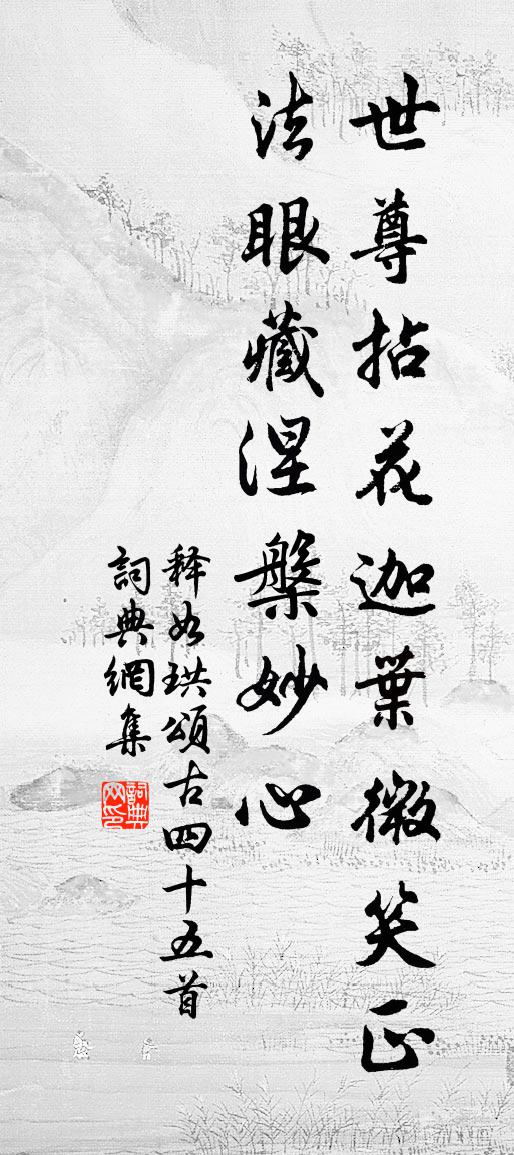 世尊拈花迦葉微笑正
法眼藏涅槃妙心
释如珙頌古四十五首
詞典網集
詞典网印